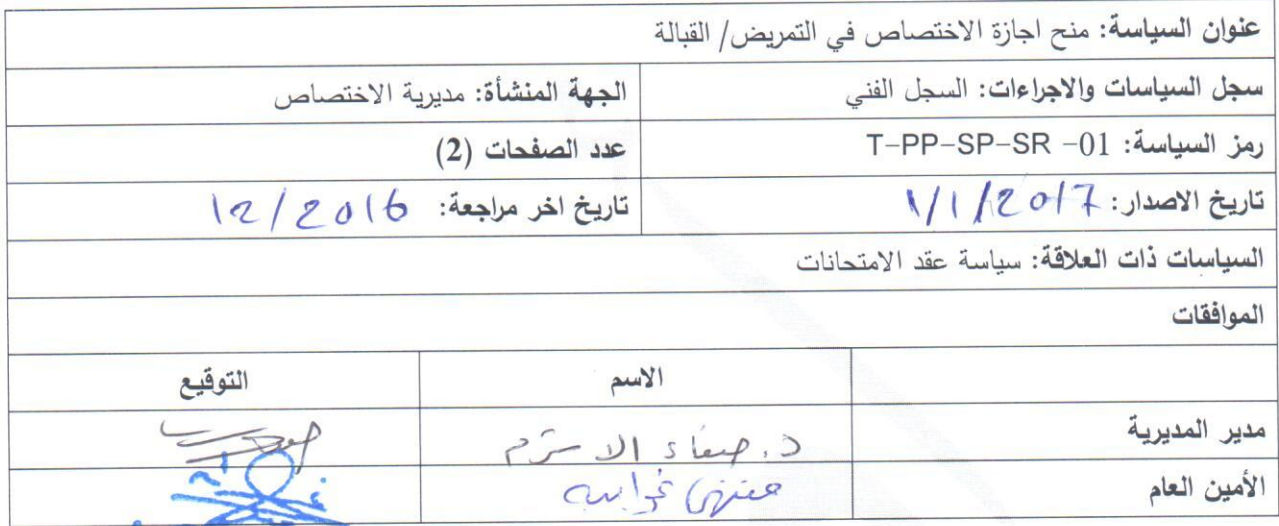 عنوان السياسة: منح اجازة الاختصاص في التمريض/ القبالة
سجل السياسات والاجراءات: السجل الفني
الجهة المنشأة: مديرية الاختصاص
رمز السياسة: T-PP-SP-SR -01
عدد الصفحات (2)
تاريخ الاصدار: 1/1/2017
تاريخ اخر مراجعة: 12/2016
السياسات ذات العلاقة: سياسة عقد الامتحانات
الموافقات
الاسم
التوقيع
مدير المديرية
د. صفاء
الأمين العام